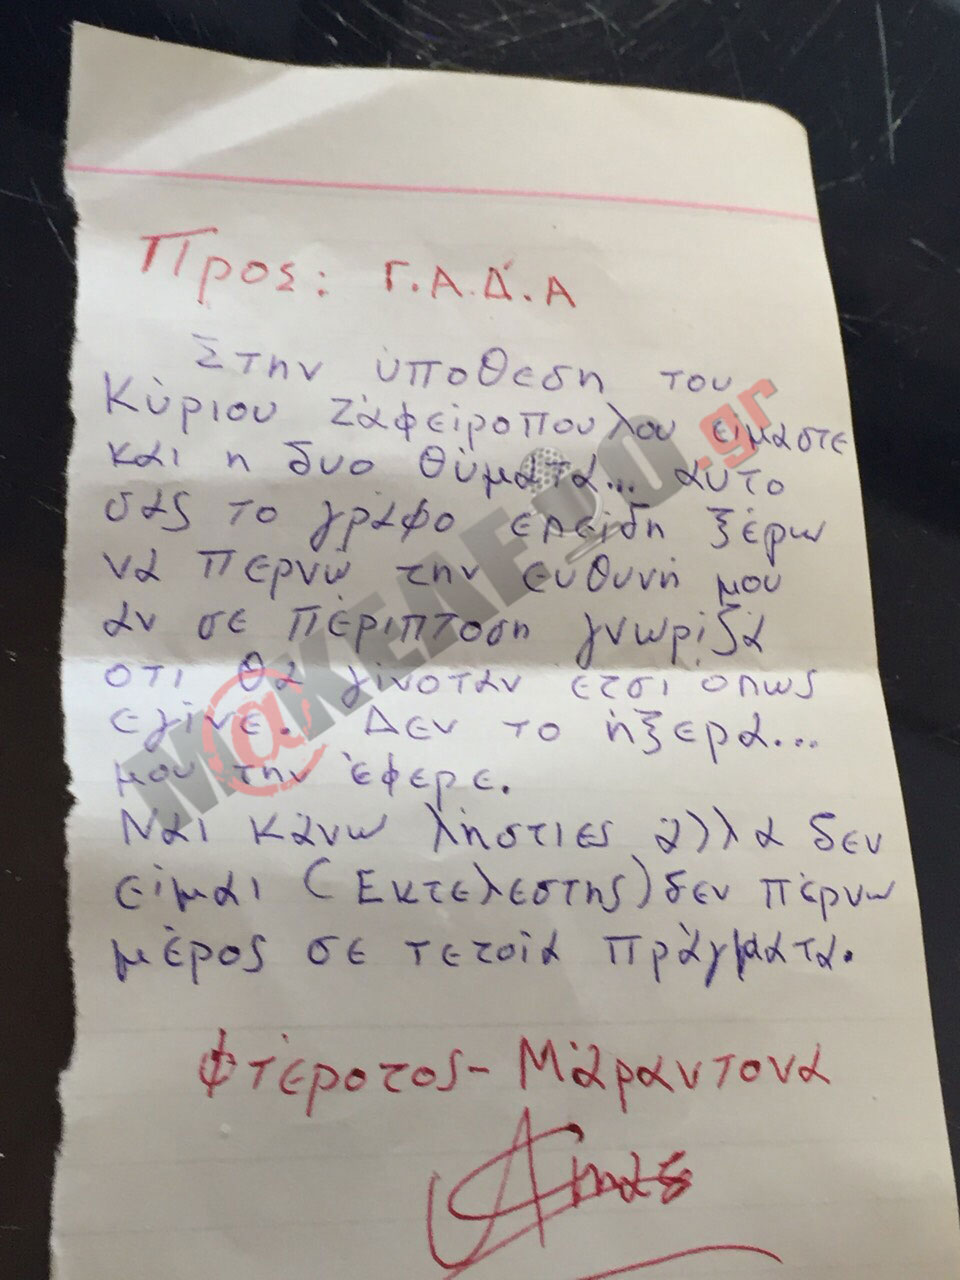 Προς: Γ.Α.Δ.Α
Στην ύποθεση του
Κύριου Ζάφείροπουλου είμαστε
και η δυο θύματα... αυτο
σας το γράφο επείδη ξέρω
να περνώ την ευθυνή μου
αν σε πέριπτοση γνωρίζα
οτι θα γίνοταν ετσι όπως
εγίνε. Δεν το ήξερα...
μου την έφερε.
Ναι κάνω λήστιες αλλα δεν
είμαι (Εκτελεστης) δεν πέρνω
μέρος σε τετοία πράγματα.
Φτέροτος - Μάραντονα
M@ΚΕΛΕΙΟ.gr